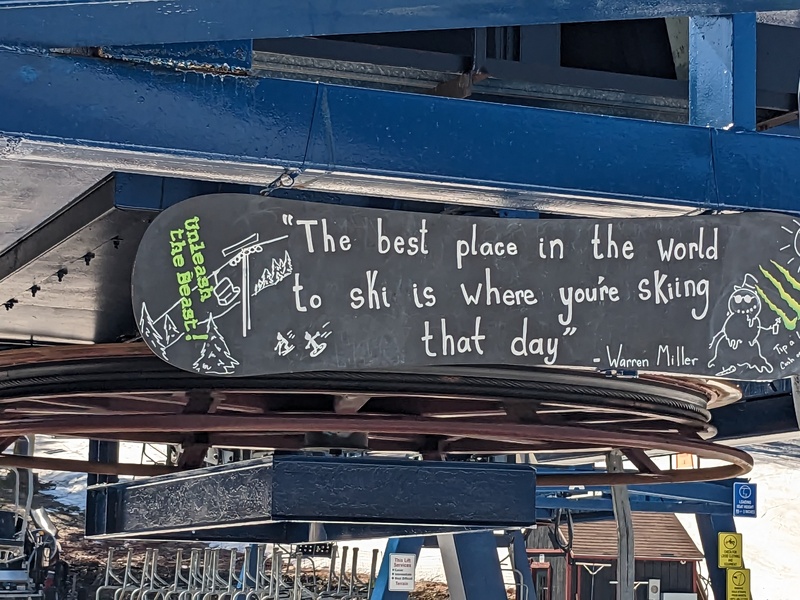 unleash
the Beast!
"The best place in the world
to ski is where you're skiing
that day"
- Warren Miller
Tip a
This Lift
Services
Terrain
LOADING